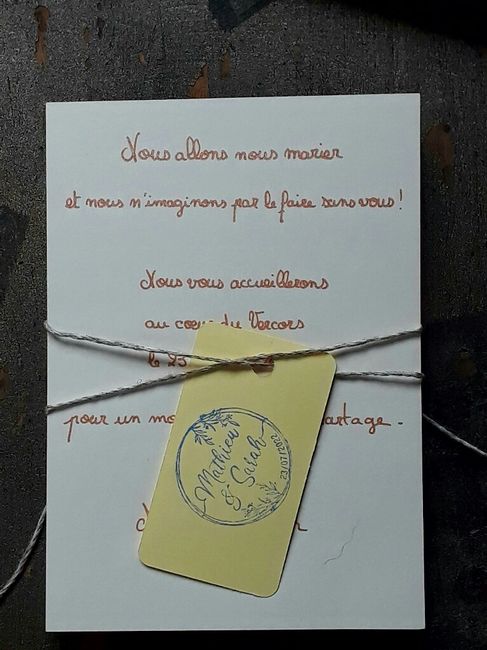 Nous allons nous marier
et nous n'imaginons par le faire sans vous !
Nous vous accueillerons
au coeur du Vercors
le 23
pour un artage.
Mathieu
& Sarah
23/07/2022